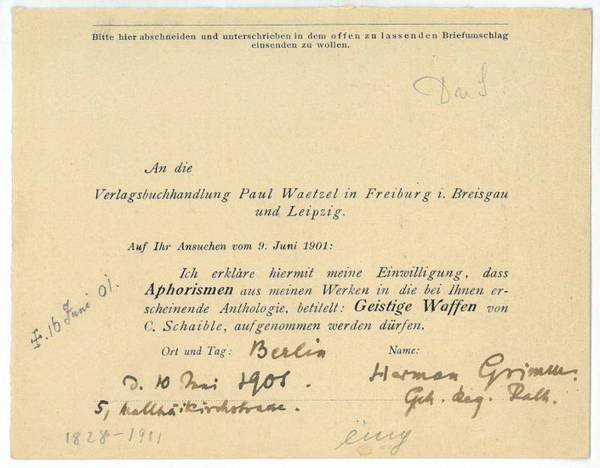 Bitte hier abschneiden und unterschrieben in dem offen zu lassenden Briefumschlag
einsenden zu wollen.
An die
Verlagsbuchhandlung Paul Waetzel in Freiburg i. Breisgau
und Leipzig.
Auf Ihr Ansuchen vom 9. Juni 1901:
Ich erkläre hiermit meine Einwilligung, dass
Aphorismen aus meinen Werken in die bei Ihnen er-
scheinende Anthologie, betitelt: Geistige Waffen von
C. Schaible, aufgenommen werden dürfen.
16 Juni 01.
Ort und Tag: Berlin Name:
Herman Grimm.
d. 10 Juni 1901.
Geh. Reg. Rath.
5, Matthäikirchstrasse.
1828-1901